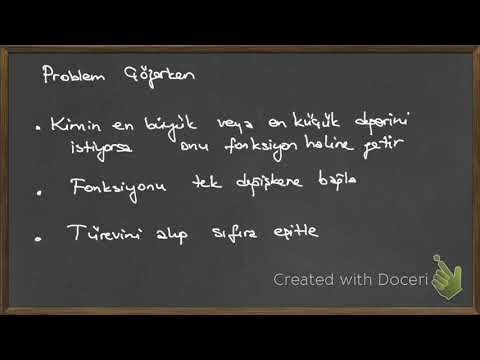 Problem Çözerken
• Kimin en büyük veya en küçük değerini
istiyorsa onu fonksiyon haline getir
• Fonksiyonu tek değişkene bağla
• Türevini alıp sıfıra eşitle
Created with Doceri